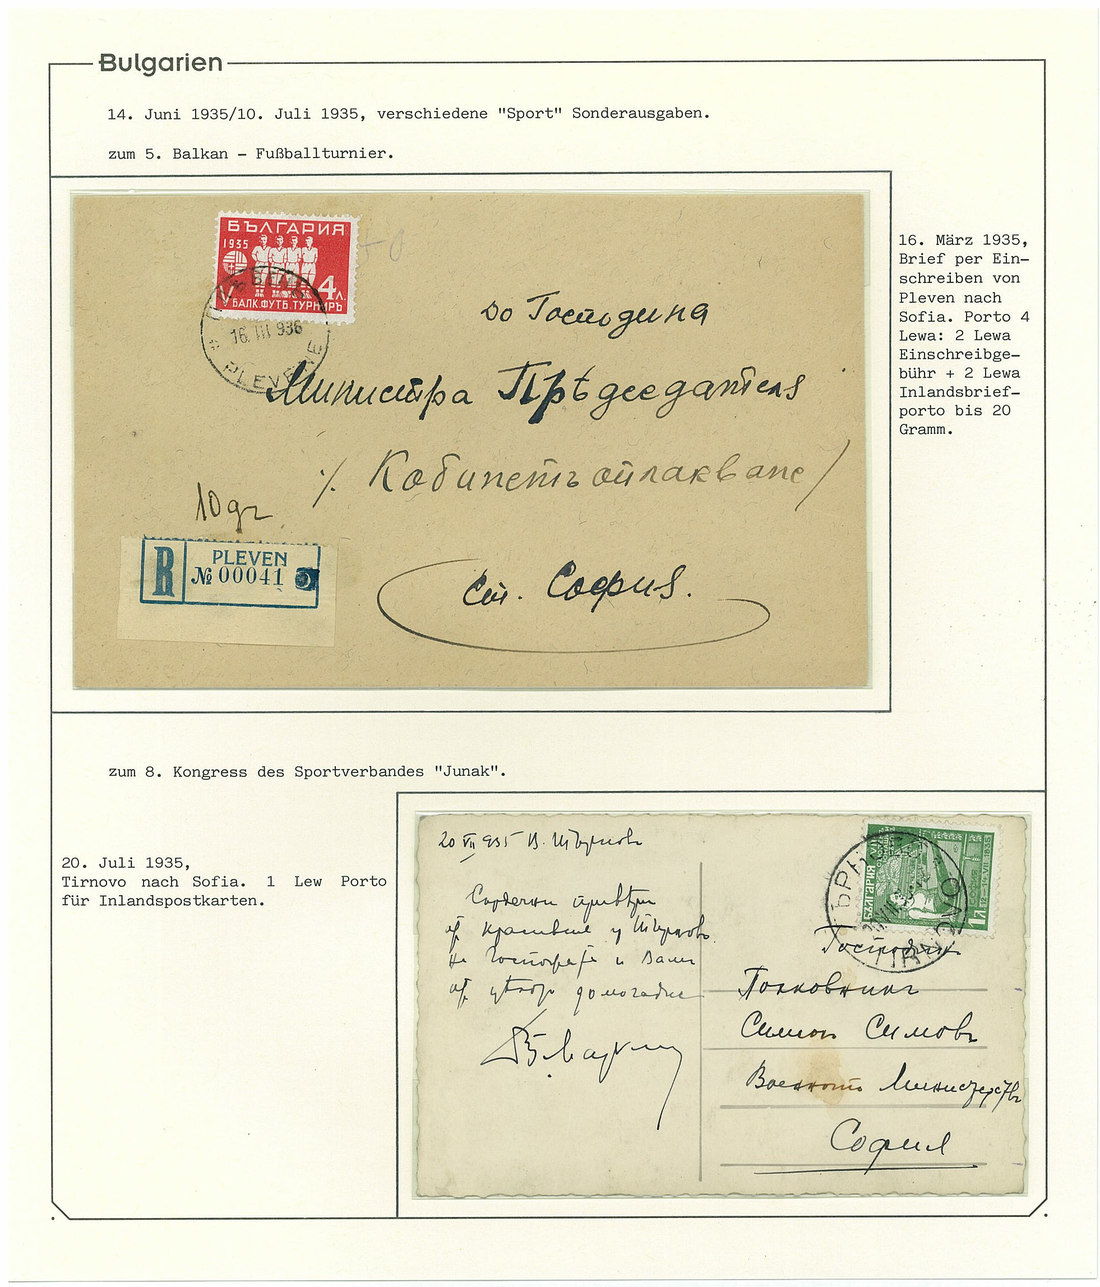 Bulgarien
14. Juni 1935/10. Juli 1935, verschiedene "Sport" Sonderausgaben.
zum 5. Balkan - Fußballturnier.
БЪЛГАРИЯ
1935
V
4 л.
БАЛК.ФУТБ.ТУРНИРЪ
16. III 936
PLEVENE
до Господина
Министра Прѣдседателя
% Кабинетъ
10 gr
R
PLEVEN
№ 00041
Ст. София.
16. März 1935,
Brief per Ein-
schreiben von
Pleven nach
Sofia. Porto 4
Lewa: 2 Lewa
Einschreibge-
bühr + 2 Lewa
Inlandsbrief-
porto bis 20
Gramm.
zum 8. Kongress des Sportverbandes "Junak".
20. Juli 1935,
Tirnovo nach Sofia. 1 Lew Porto
für Inlandspostkarten.
20 VII 935 В. Търново
Сърдечни привети
от у Търново
на и
от
БЪЛГАРИЯ
1 л
Полковникъ
Симон Симовъ
Военното Министерство
София